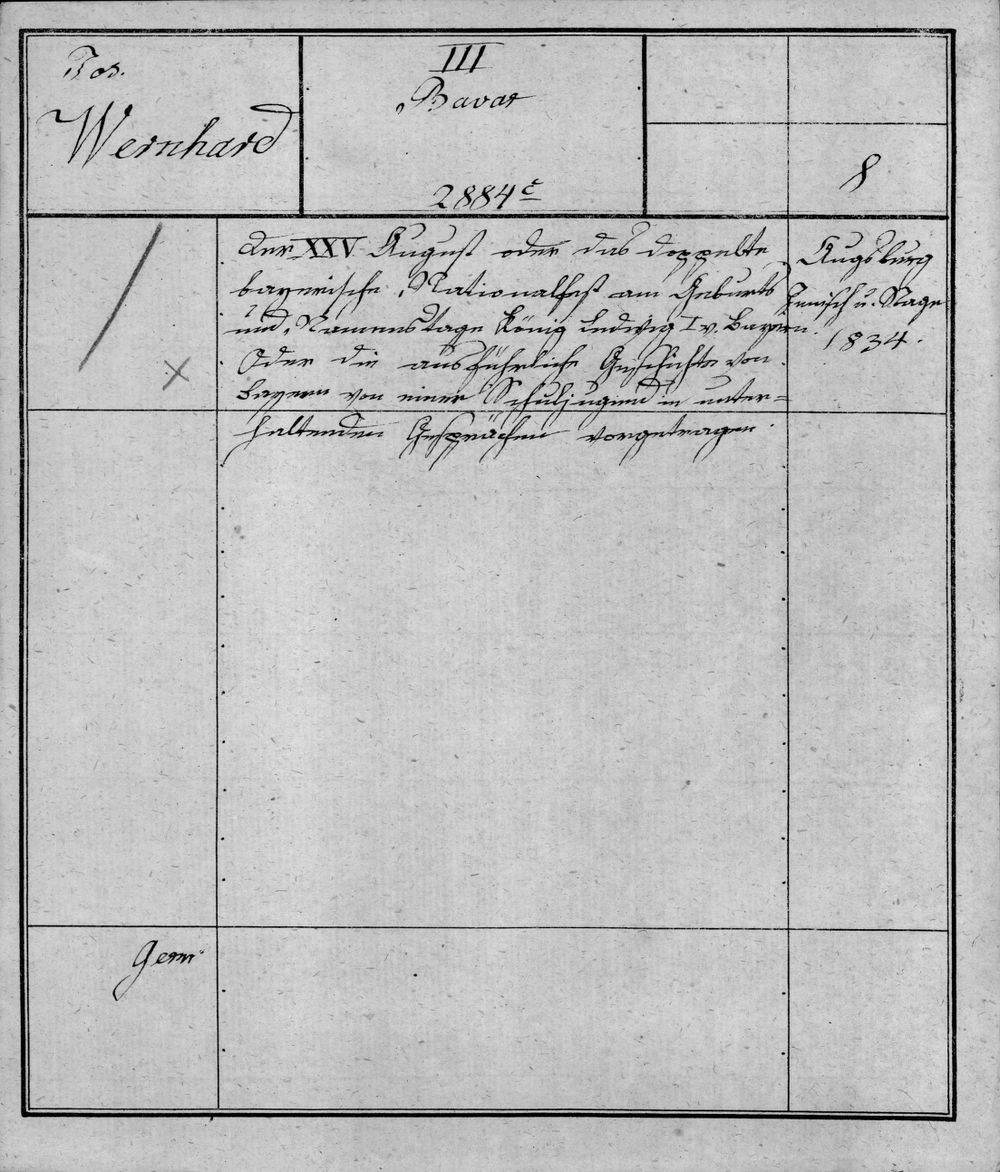 Jos.
Wernhard
III
Bavar
2884 c
8
Der XXV August oder das doppelte
bayerische Nationalfest am Geburts
und Namenstage König Ludwig I v. Bayern.
Oder die ausführliche Geschichte von
Bayern von einer Schuljugend in unter=
haltenden Gesprächen vorgetragen.
Augsburg
Jenisch u. Stage
1834.
Germ